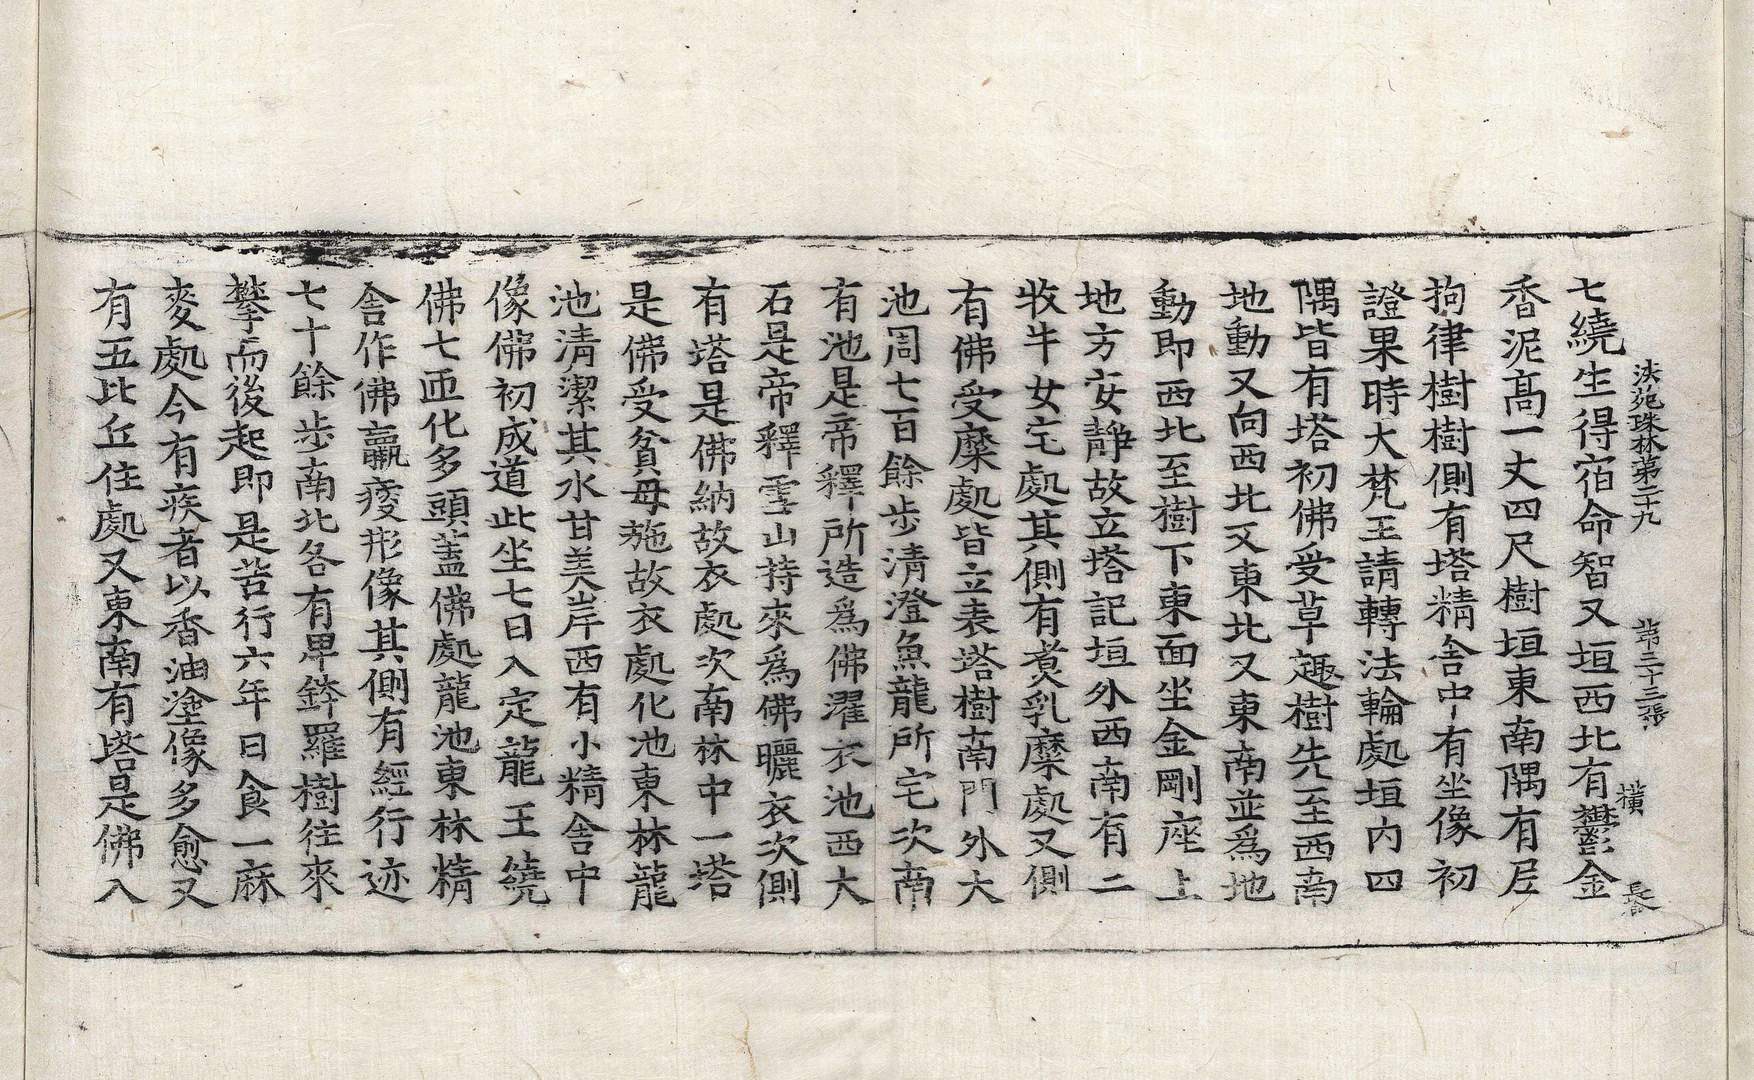 法苑珠林第二十九　第三十三張　橫
七繞生得宿命智又垣西北有鬱金
香泥高一丈四尺樹垣東南隅有尼
拘律樹樹側有塔精舍中有坐像初
證果時大梵王請轉法輪處垣內四
隅皆有塔初佛受草趣樹先至西南
地動又向西北又東北又東南並爲地
動即西北至樹下東面坐金剛座上
地方安靜故立塔記垣外西南有二
牧牛女宅處其側有煑乳糜處又側
有佛受糜處皆立表塔樹南門外大
池周七百餘步清澄魚龍所宅次南
有池是帝釋所造爲佛濯衣池西大
石是帝釋雪山持來爲佛曬衣次側
有塔是佛納故衣處次南林中一塔
是佛受貧母施故衣處化池東林龍
池清潔其水甘美岸西有小精舍中
像佛初成道此坐七日入定龍王繞
佛七匝化多頭蓋佛處龍池東林精
舍作佛羸瘦形像其側有經行迹
七十餘步南北各有畢鉢羅樹往來
攀而後起即是苦行六年日食一麻
麥處今有疾者以香油塗像多愈又
有五比丘住處又東南有塔是佛入